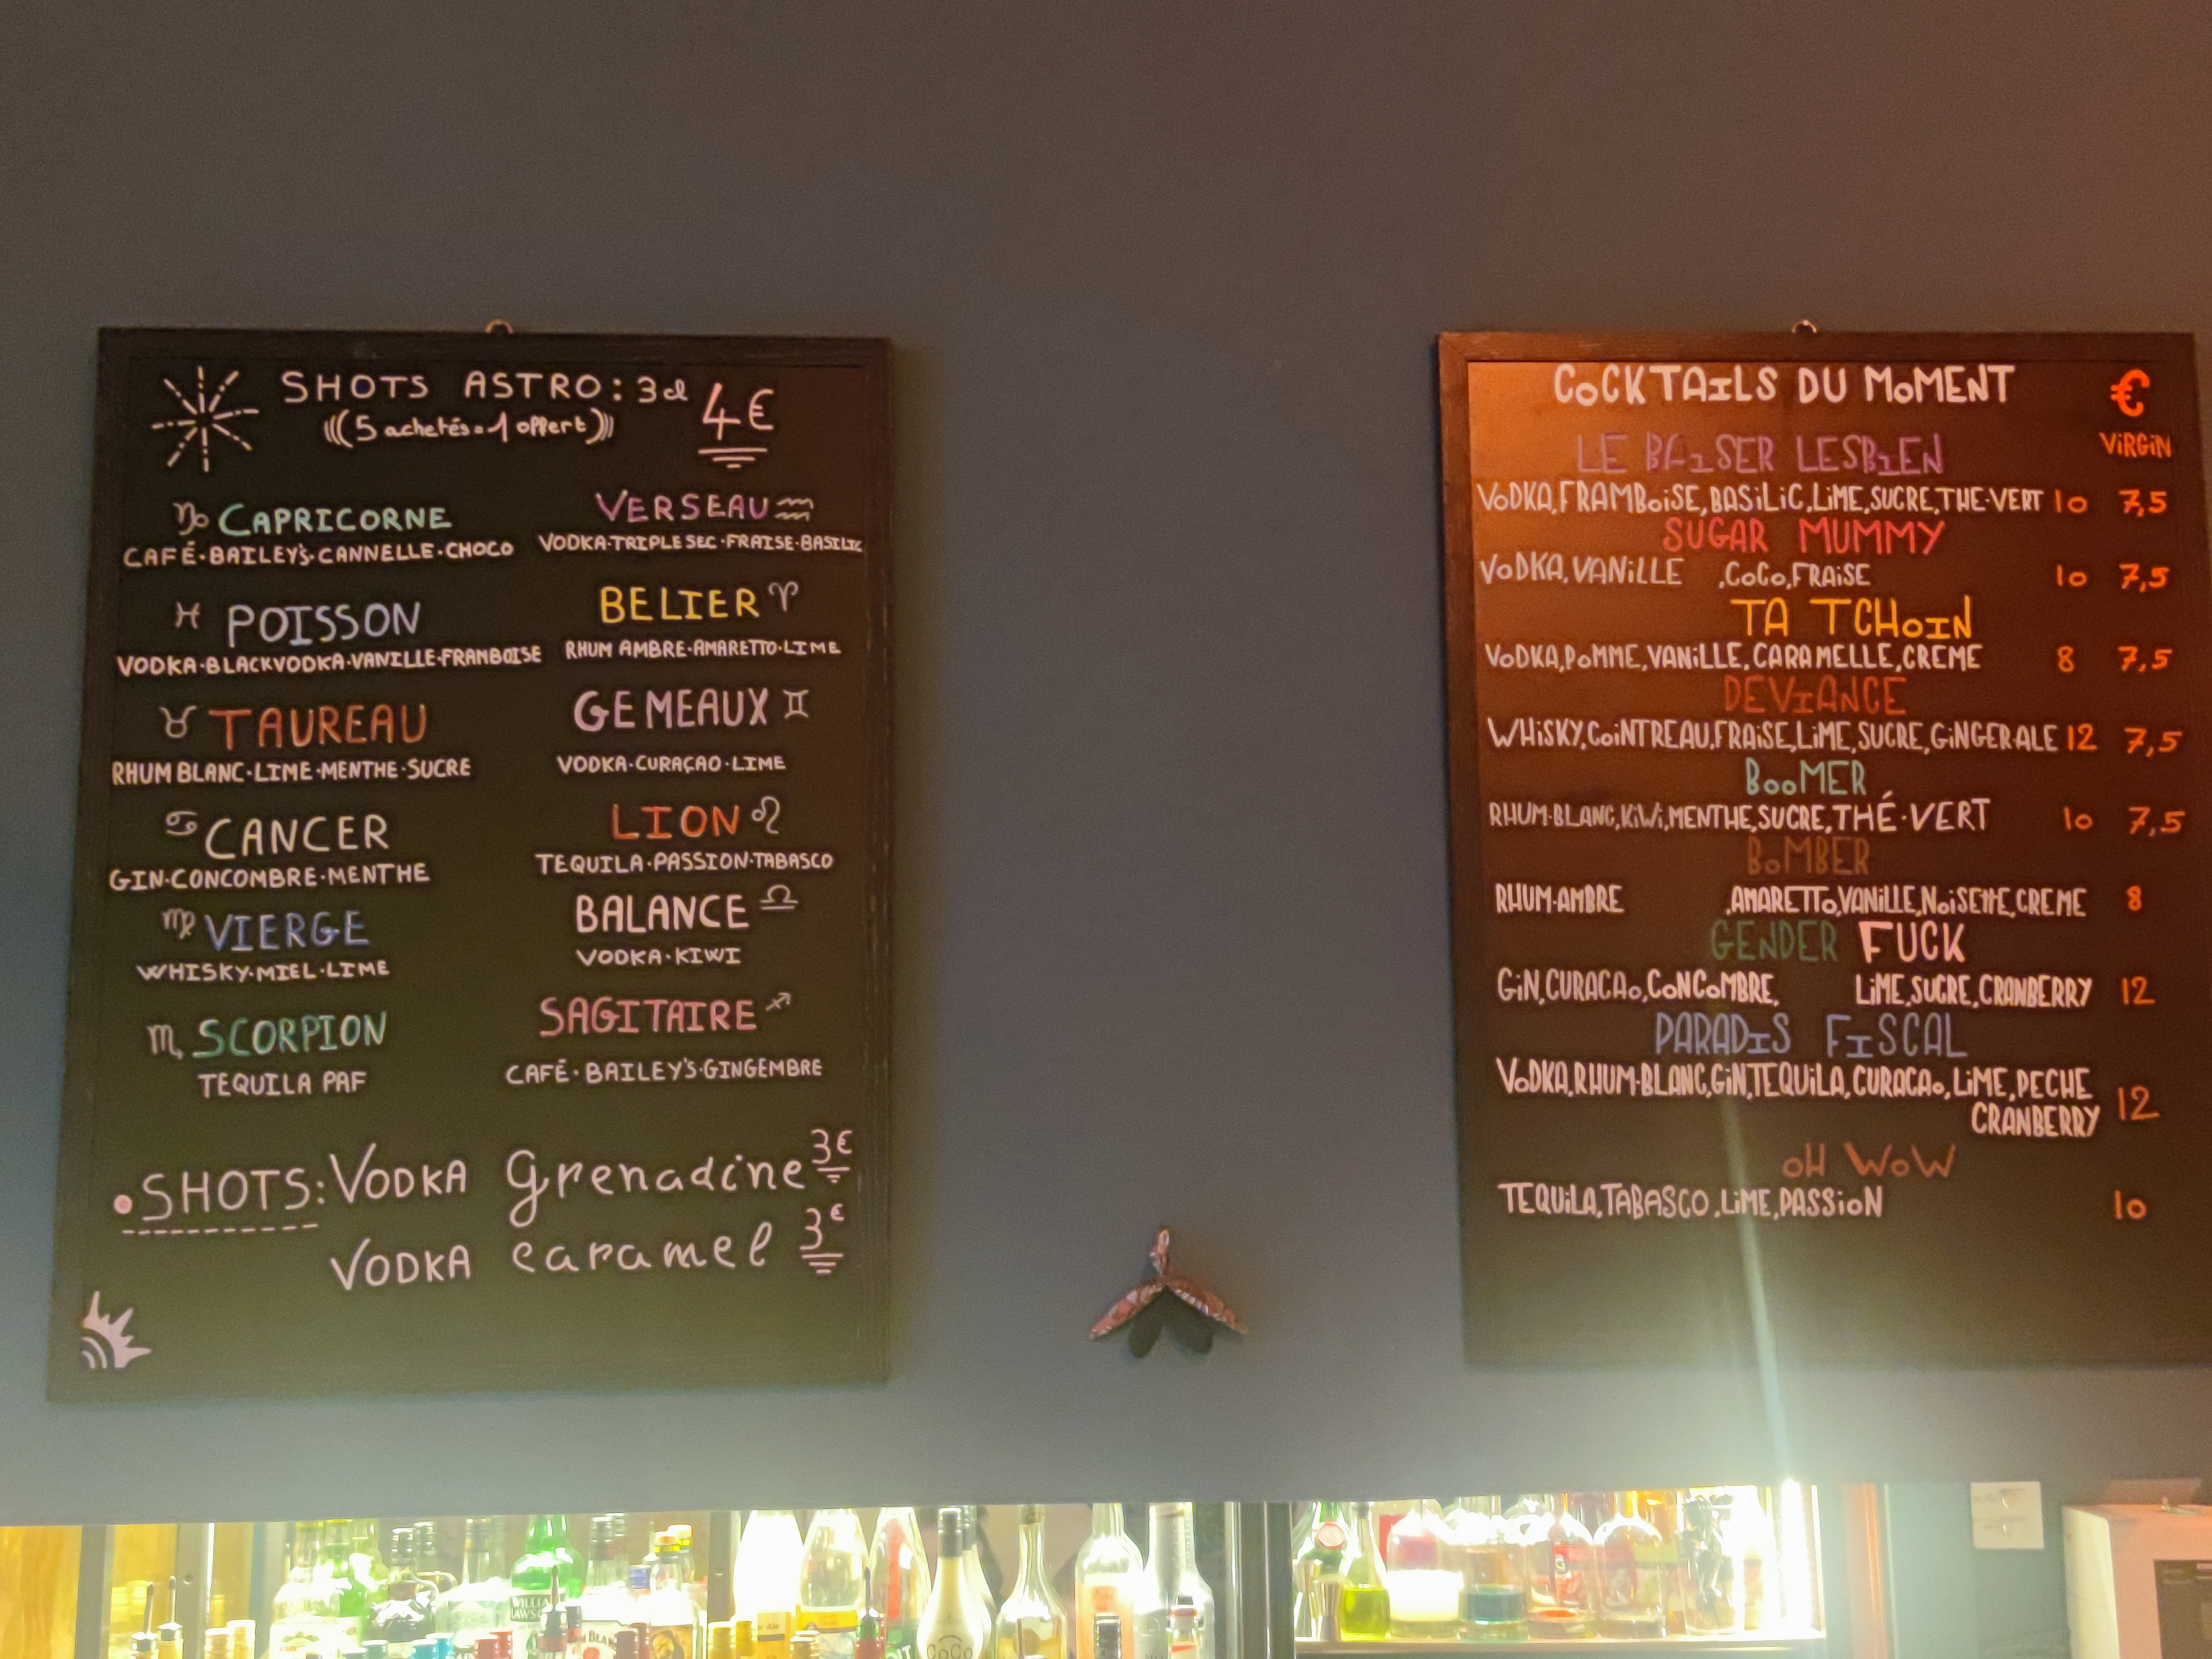 SHOTS ASTRO: 3cl 4€
(((5 achetés=1 offert)))
CAPRICORNE
CAFÉ·BAILEY'S·CANNELLE·CHOCO
POISSON
VODKA·BLACKVODKA·VANILLE·FRAMBOISE
TAUREAU
RHUM BLANC·LIME·MENTHE·SUCRE
CANCER
GIN·CONCOMBRE·MENTHE
VIERGE
WHISKY·MIEL·LIME
SCORPION
TEQUILA PAF
VERSEAU
VODKA·TRIPLE SEC·FRAISE·BASILIC
BELIER
RHUM AMBRE·AMARETTO·LIME
GEMEAUX
VODKA·CURAÇAO·LIME
LION
TEQUILA·PASSION·TABASCO
BALANCE
VODKA·KIWI
SAGITAIRE
CAFÉ·BAILEY'S·GINGEMBRE
•SHOTS: VODKA grenadine 3€
VODKA caramel 3€
COCKTAILS DU MOMENT €
VIRGIN
LE BAISER LESBIEN
VODKA,FRAMBOISE,BASILIC,LIME,SUCRE,THE·VERT 10 7,5
SUGAR MUMMY
VODKA,VANILLE ,COCO,FRAISE 10 7,5
TA TCHOIN
VODKA,POMME,VANILLE,CARAMELLE,CREME 8 7,5
DEVIANCE
WHISKY,COINTREAU,FRAISE,LIME,SUCRE,GINGER·ALE 12 7,5
BOOMER
RHUM·BLANC,KIWI,MENTHE,SUCRE,THÉ·VERT 10 7,5
BOMBER
RHUM·AMBRE ,AMARETTO,VANILLE,NOISETTE,CREME 8
GENDER FUCK
GIN,CURACAO,CONCOMBRE, LIME,SUCRE,CRANBERRY 12
PARADIS FISCAL
VODKA,RHUM·BLANC,GIN,TEQUILA,CURACAO,LIME,PECHE
CRANBERRY 12
OH WOW
TEQUILA,TABASCO,LIME,PASSION 10
COCO